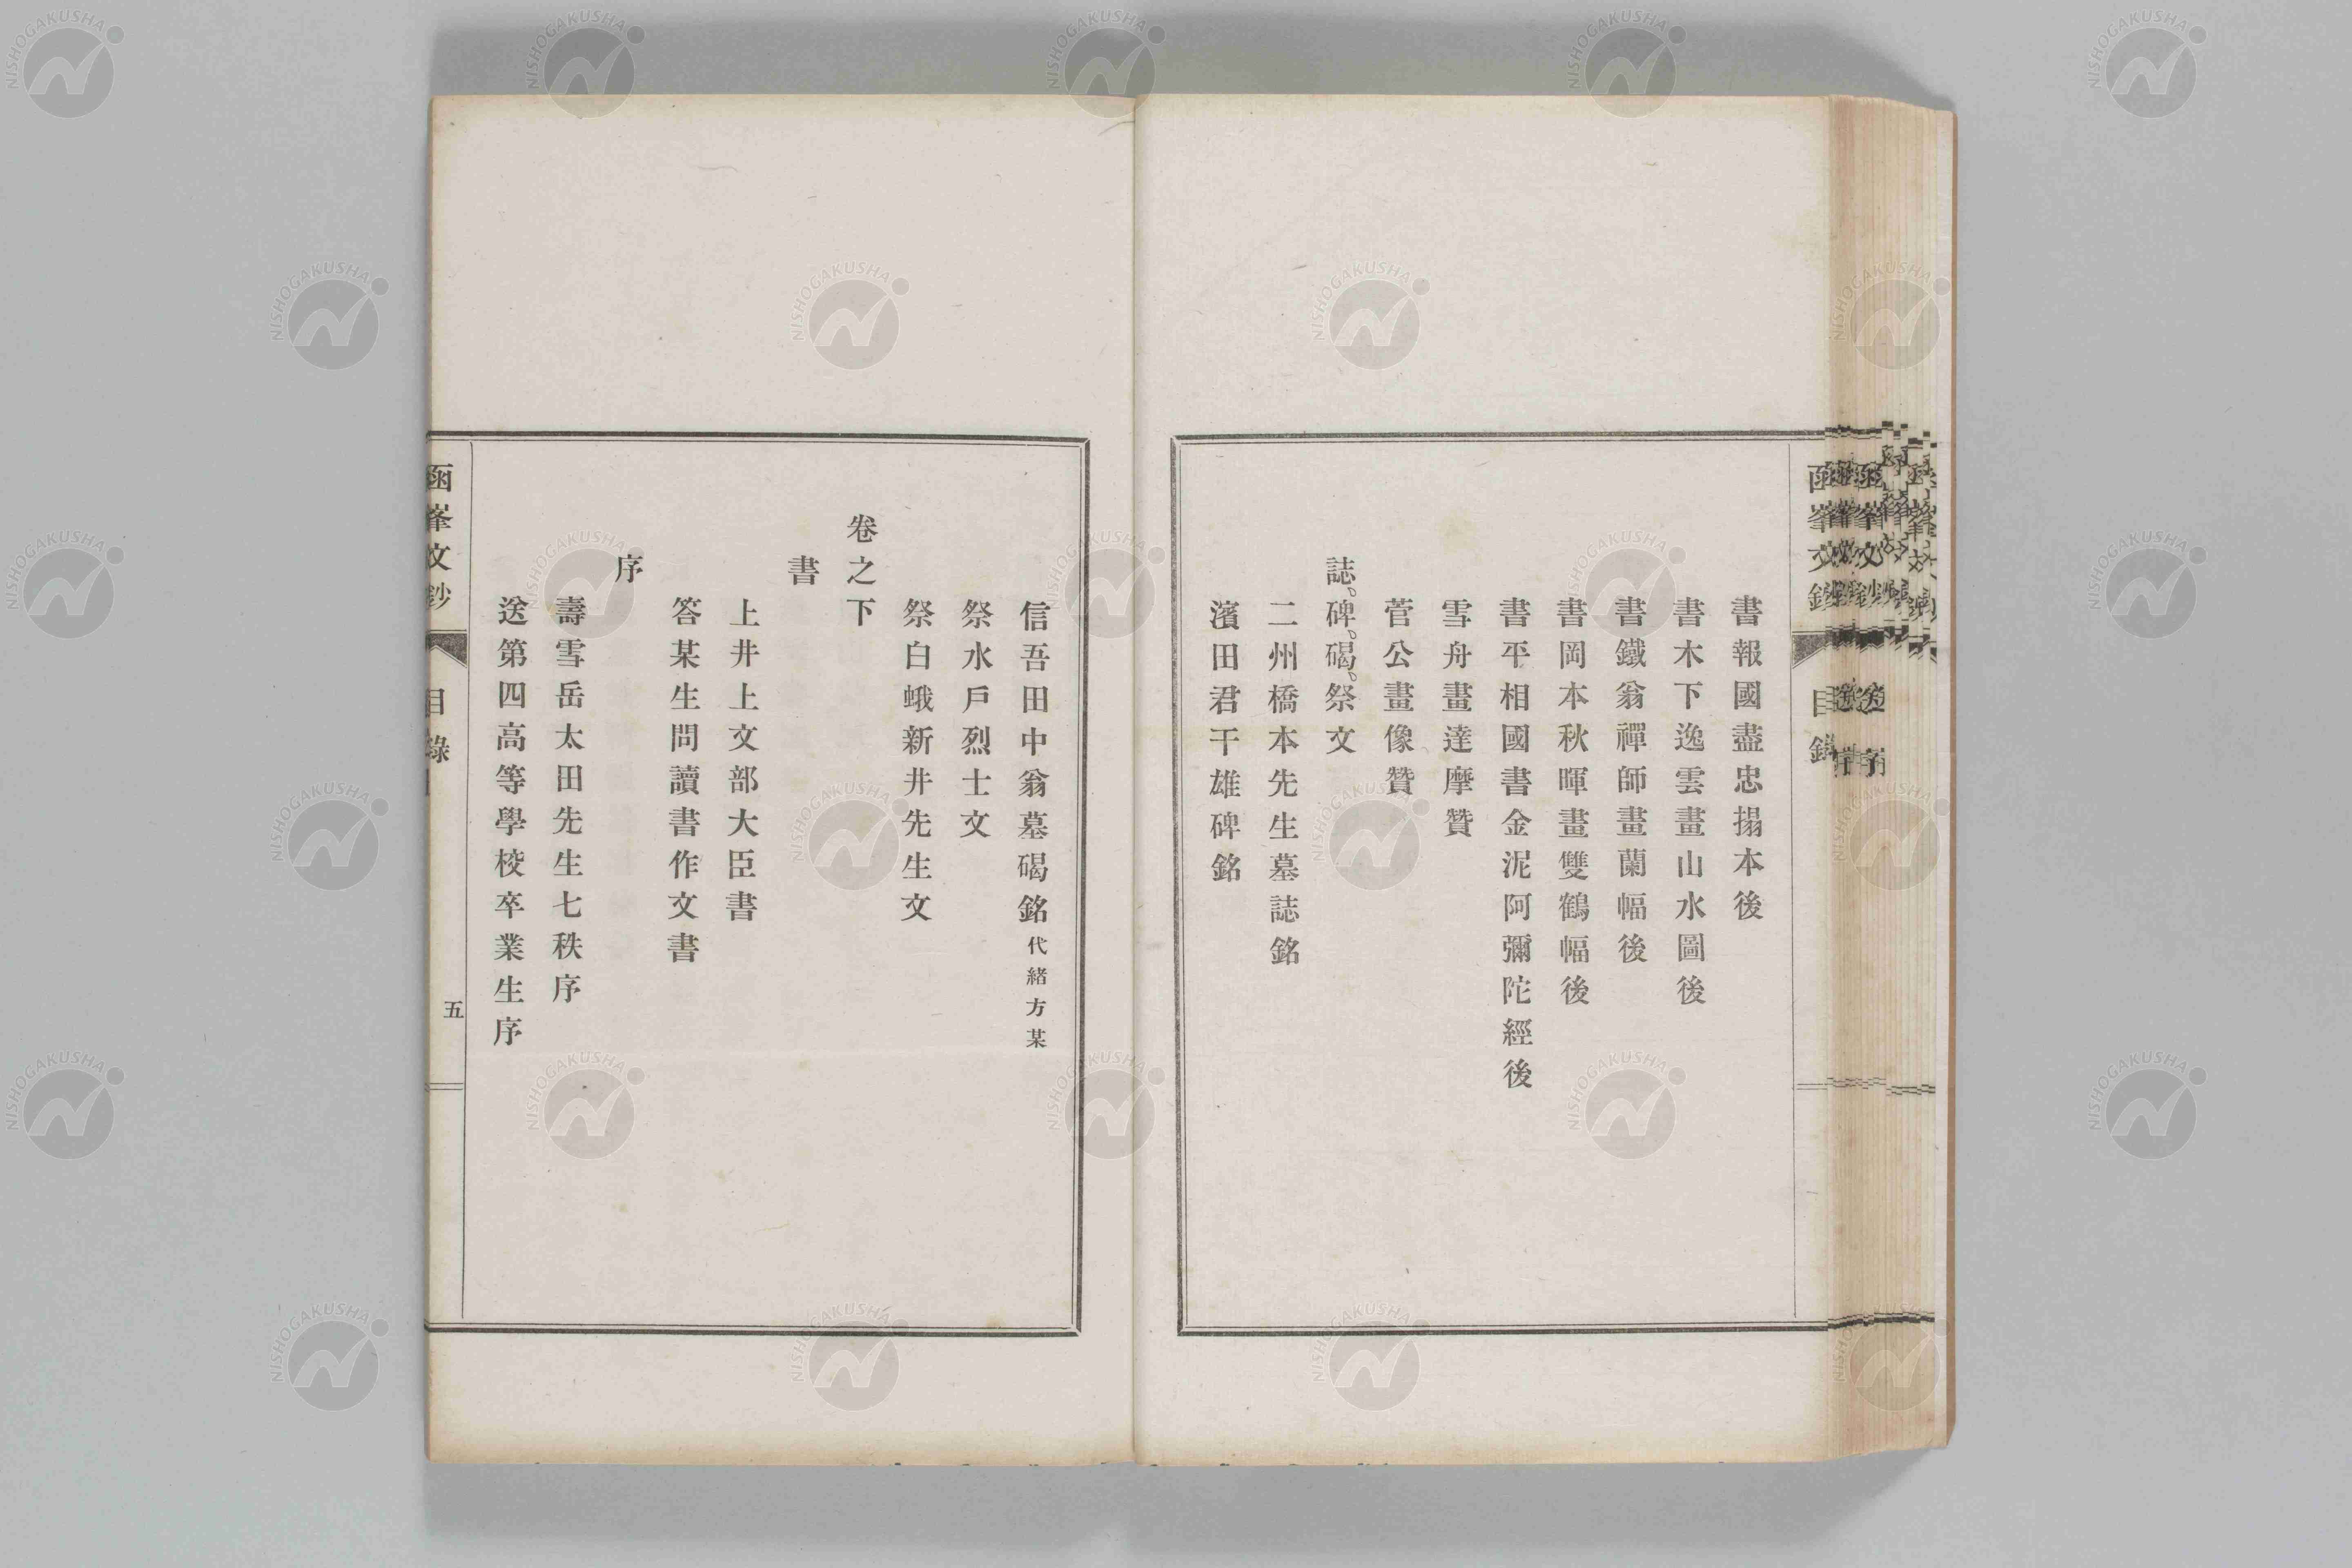 書報國盡忠搨本後
書木下逸雲畫山水圖後
書鐵翁禪師畫蘭幅後
書岡本秋暉畫雙鶴幅後
書平相國書金泥阿彌陀經後
雪舟畫達摩贊
菅公畫像贊
誌。碑。碣。祭文
二州橋本先生墓誌銘
濱田君干雄碑銘
信吾田中翁墓碣銘代緒方某
祭水戶烈士文
祭白蛾新井先生文
卷之下
書
上井上文部大臣書
答某生問讀書作文書
序
壽雪岳太田先生七秩序
送第四高等學校卒業生序
函峯文鈔
目錄
五
NISHOGAKUSHA